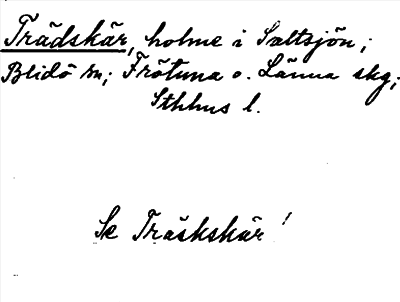 Trädskär, holme i Saltsjön;
Blidö sn; Frötuna o. Länna skg;
Sthlms l.
Se Träskskär!